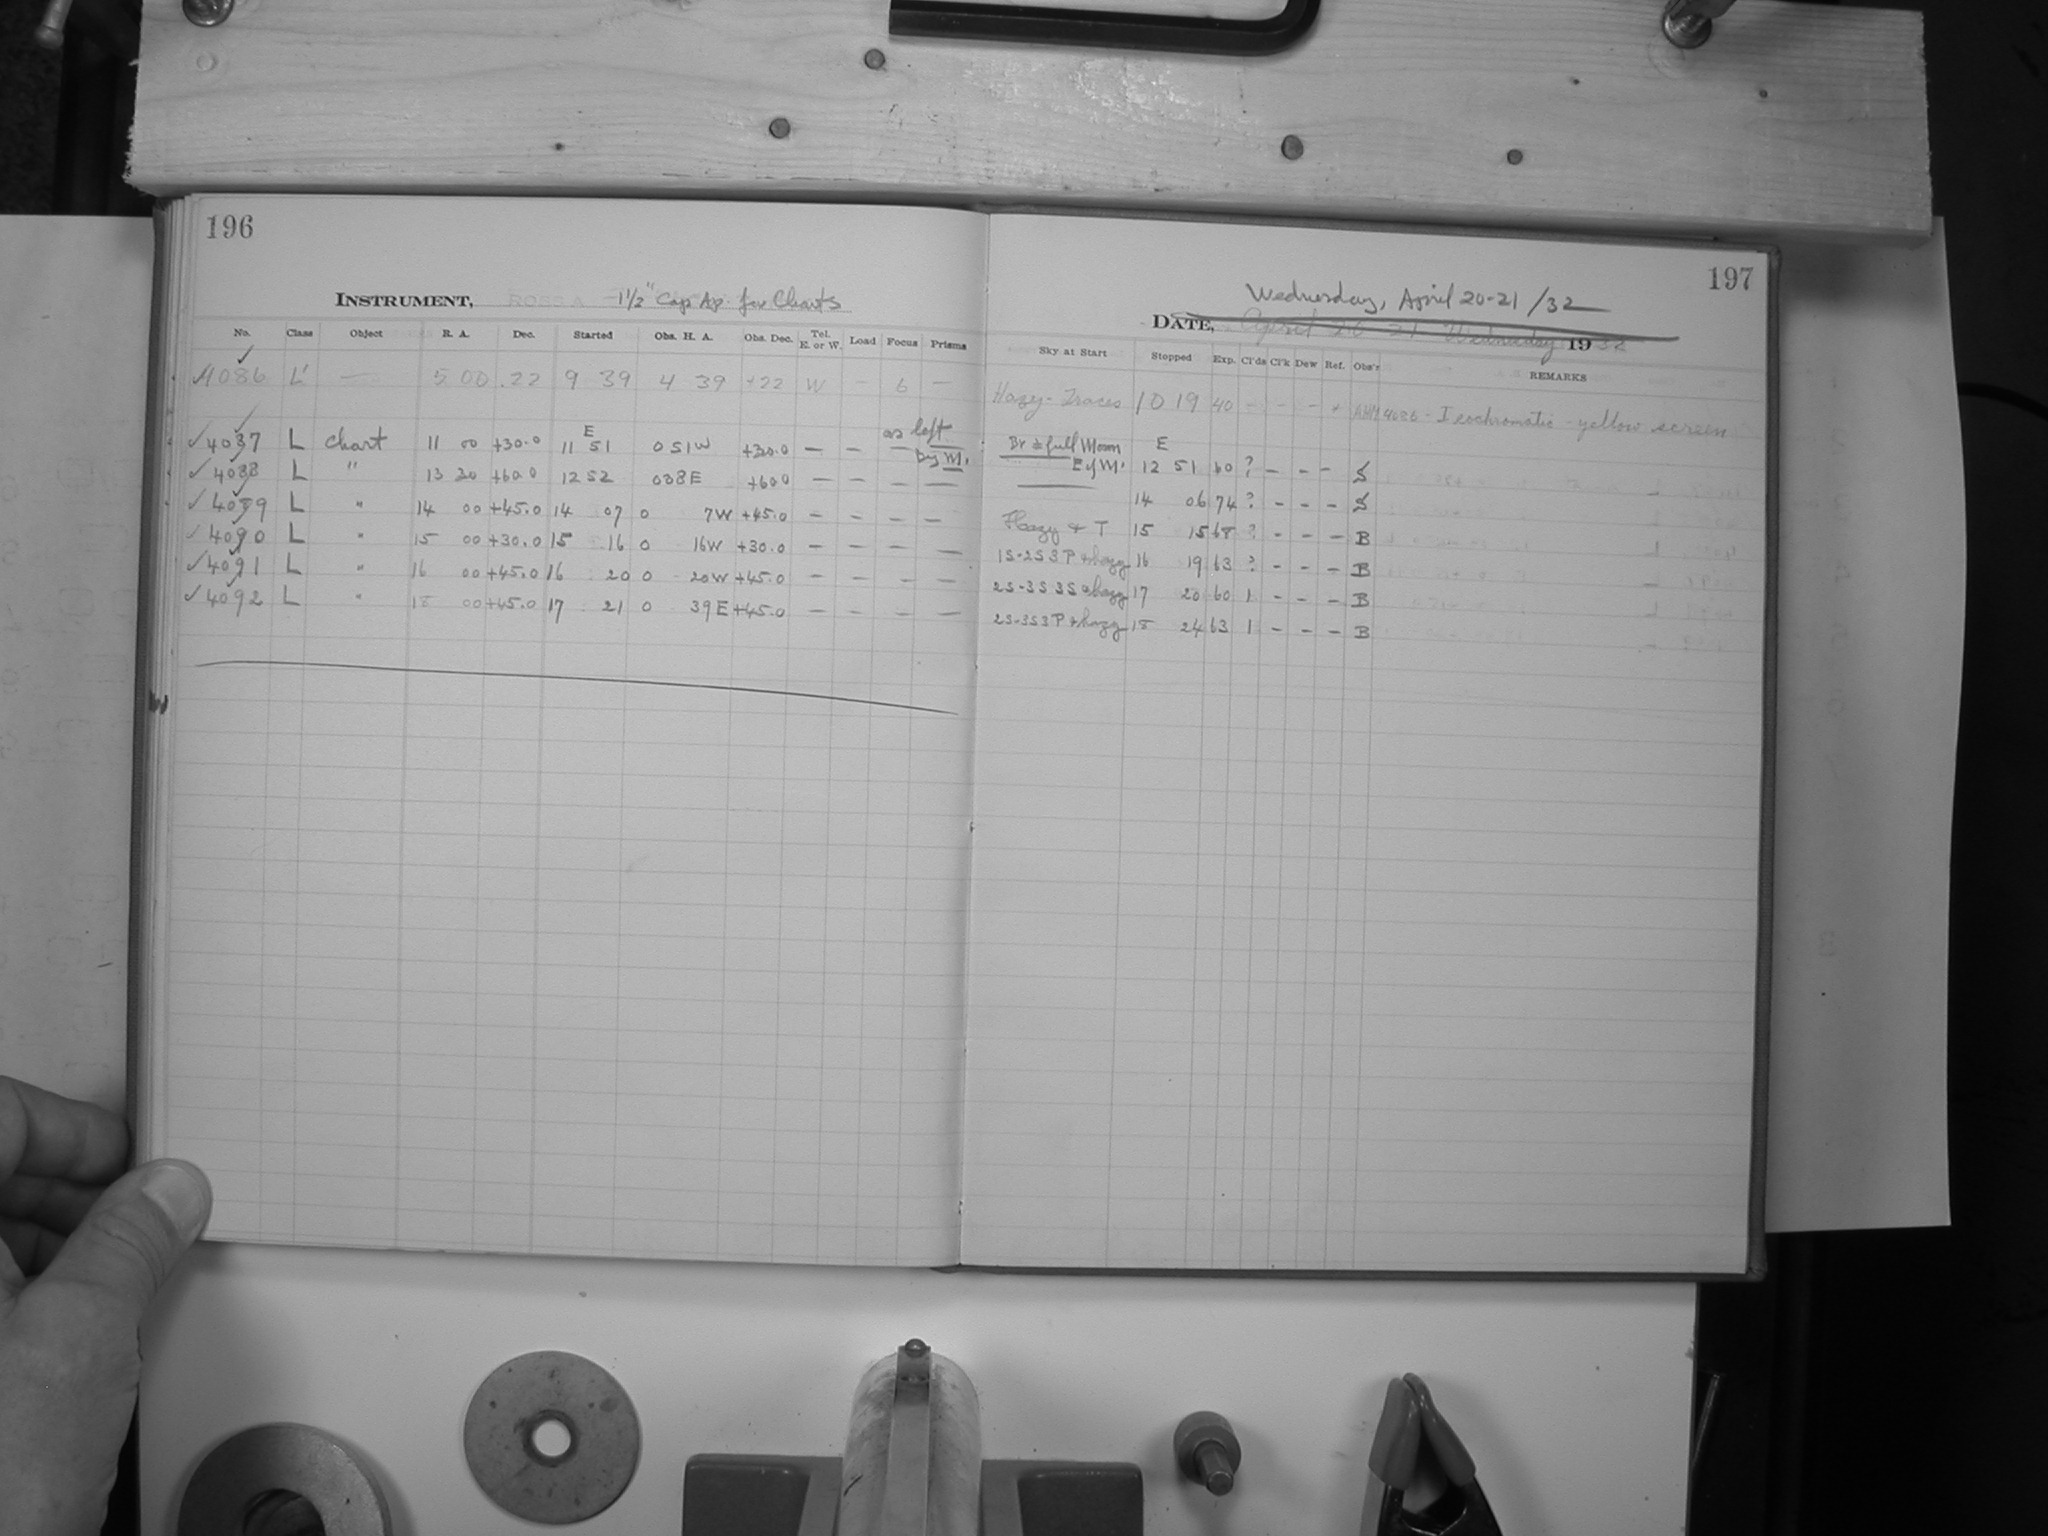 196
INSTRUMENT, ROSS A 1½" Cap Ap. for Charts
No. Class Object R. A. Dec. Started Obs. H. A. Obs. Dec. Tel. E. or W. Load Focus Prisms
4086 L' — 5 00 .22 9 39 4 39 +22 W — 6 —
as left by M.
4037 L Chart 11 00 +30.0 E 11 51 0 51W +30.0 — —
4088 L " 13 30 +60.0 12 52 038E +600 — — — —
4089 L " 14 00 +45.0 14 07 0 7W +45.0 — — — —
4090 L " 15 00 +30.0 15 16 0 16W +30.0 — — — —
4091 L " 16 00 +45.0 16 20 0 20W +45.0 — — — —
4092 L " 18 00 +45.0 17 21 0 39E +45.0 — — — —
197
Wednesday, April 20-21 /32
DATE, April 20-21 Wednesday 1932
Sky at Start Stopped Exp. Cl'ds Cl'k Dew Ref. Obs'r REMARKS
Hazy-Traces 10 19 40 - - - AHM 4086 - Isochromatic - yellow screen
Br & full Moon E
E of M. 12 51 60 ? - - - S
14 06 74 ? - - - S
Hazy & T 15 15 68 ? - - - B
1S-2S 3P & hazy 16 19 63 ? - - - B
2S-3S 3S & hazy 17 20 60 1 - - - B
2S-3S3P & hazy 18 24 63 1 - - - B